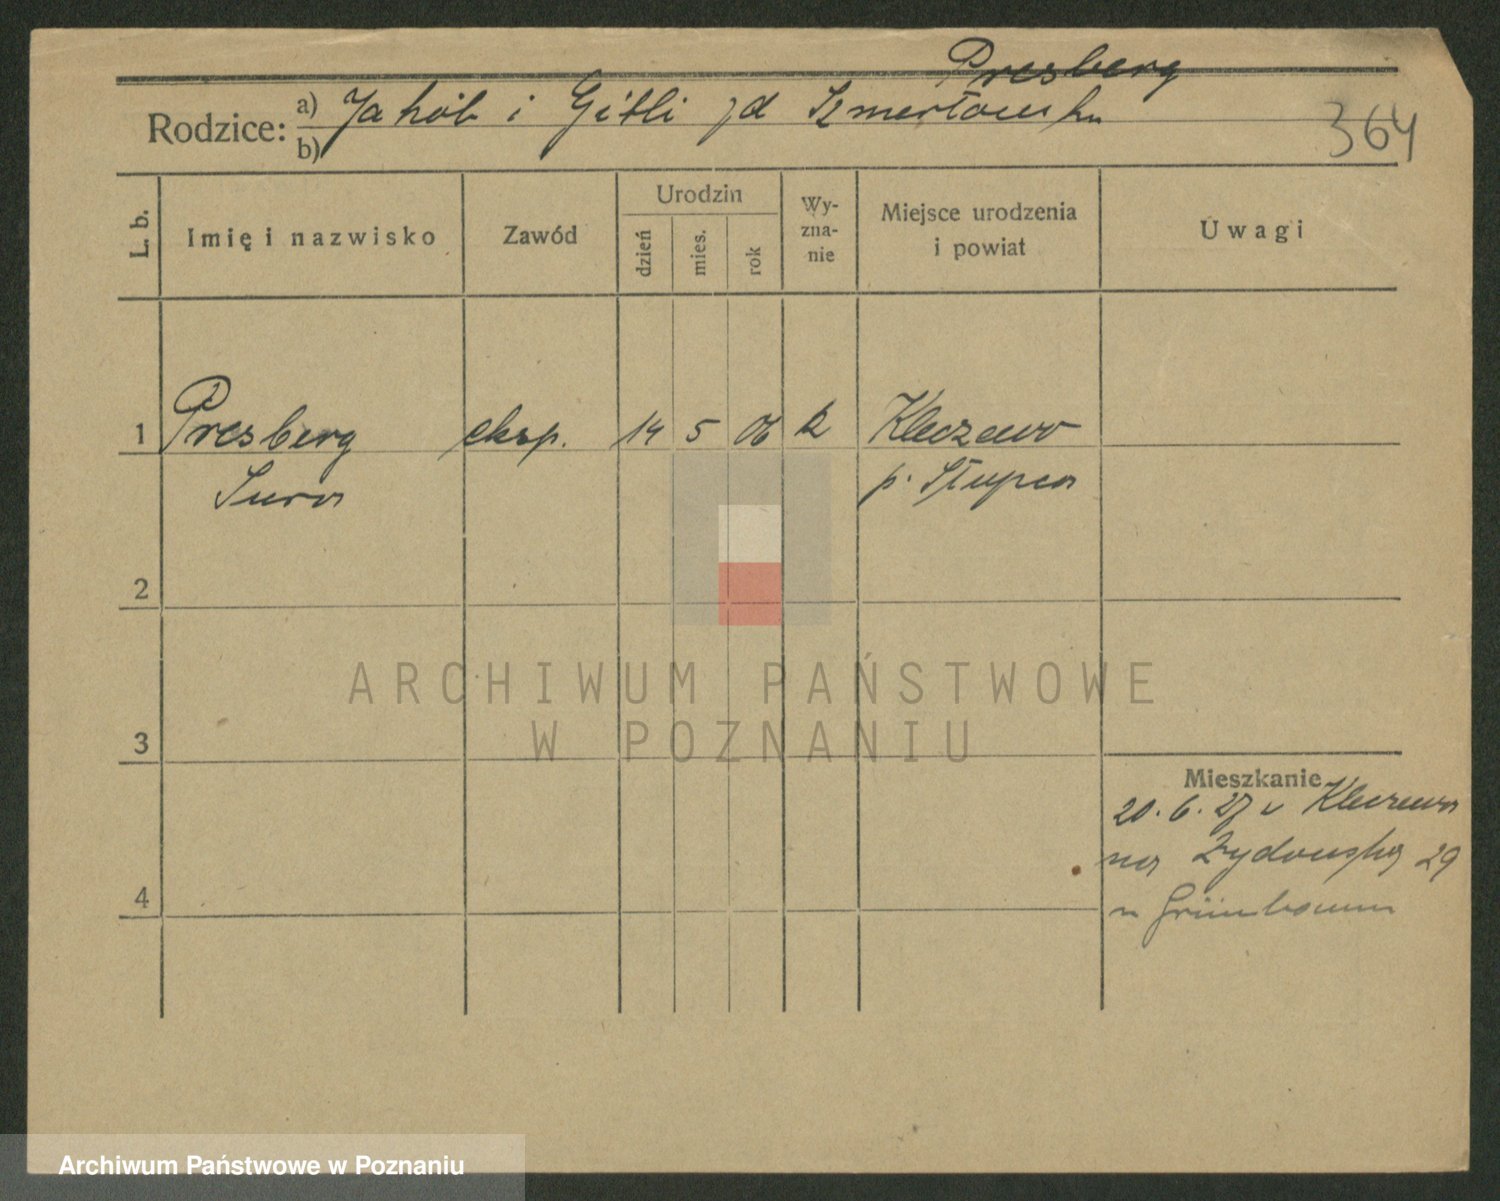 Presberg
Rodzice: a) Jakób i Gitli zd Szmertowska
b)
364
L. b.
Imię i nazwisko
Zawód
Urodzin
dzień
mies.
rok
Wy-
zna-
nie
Miejsce urodzenia
i powiat
Uwagi
1 Presberg eksp. 14 5 06 Kleczewo
Sura p. Słupca
2
3
4
Mieszkanie
20. 6. 27 z Kleczewa
na Żydowską 29
u Grünbaum
ARCHIWUM PAŃSTWOWE
W POZNANIU
Archiwum Państwowe w Poznaniu